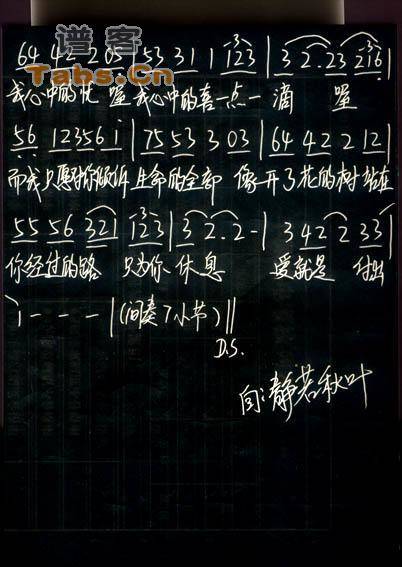 谱客
Tabs.Cn
64 42 2 05 | 53 31 1 123 | 3 2.23 216 |
我心中的忧 喧 我心中的喜一点一 滴 喧
56 123561 | 7553 3 03 | 64 42 2 12 |
而我只愿对你倾诉 生命的全部 像开了花的树 站在
55 56 321 123 | 3 2.2- | 342 2 33 |
你经过的路 只为你 休息 爱就是 付出
1 - - - | (间奏7小节) ||
D.S.
自:静若秋叶